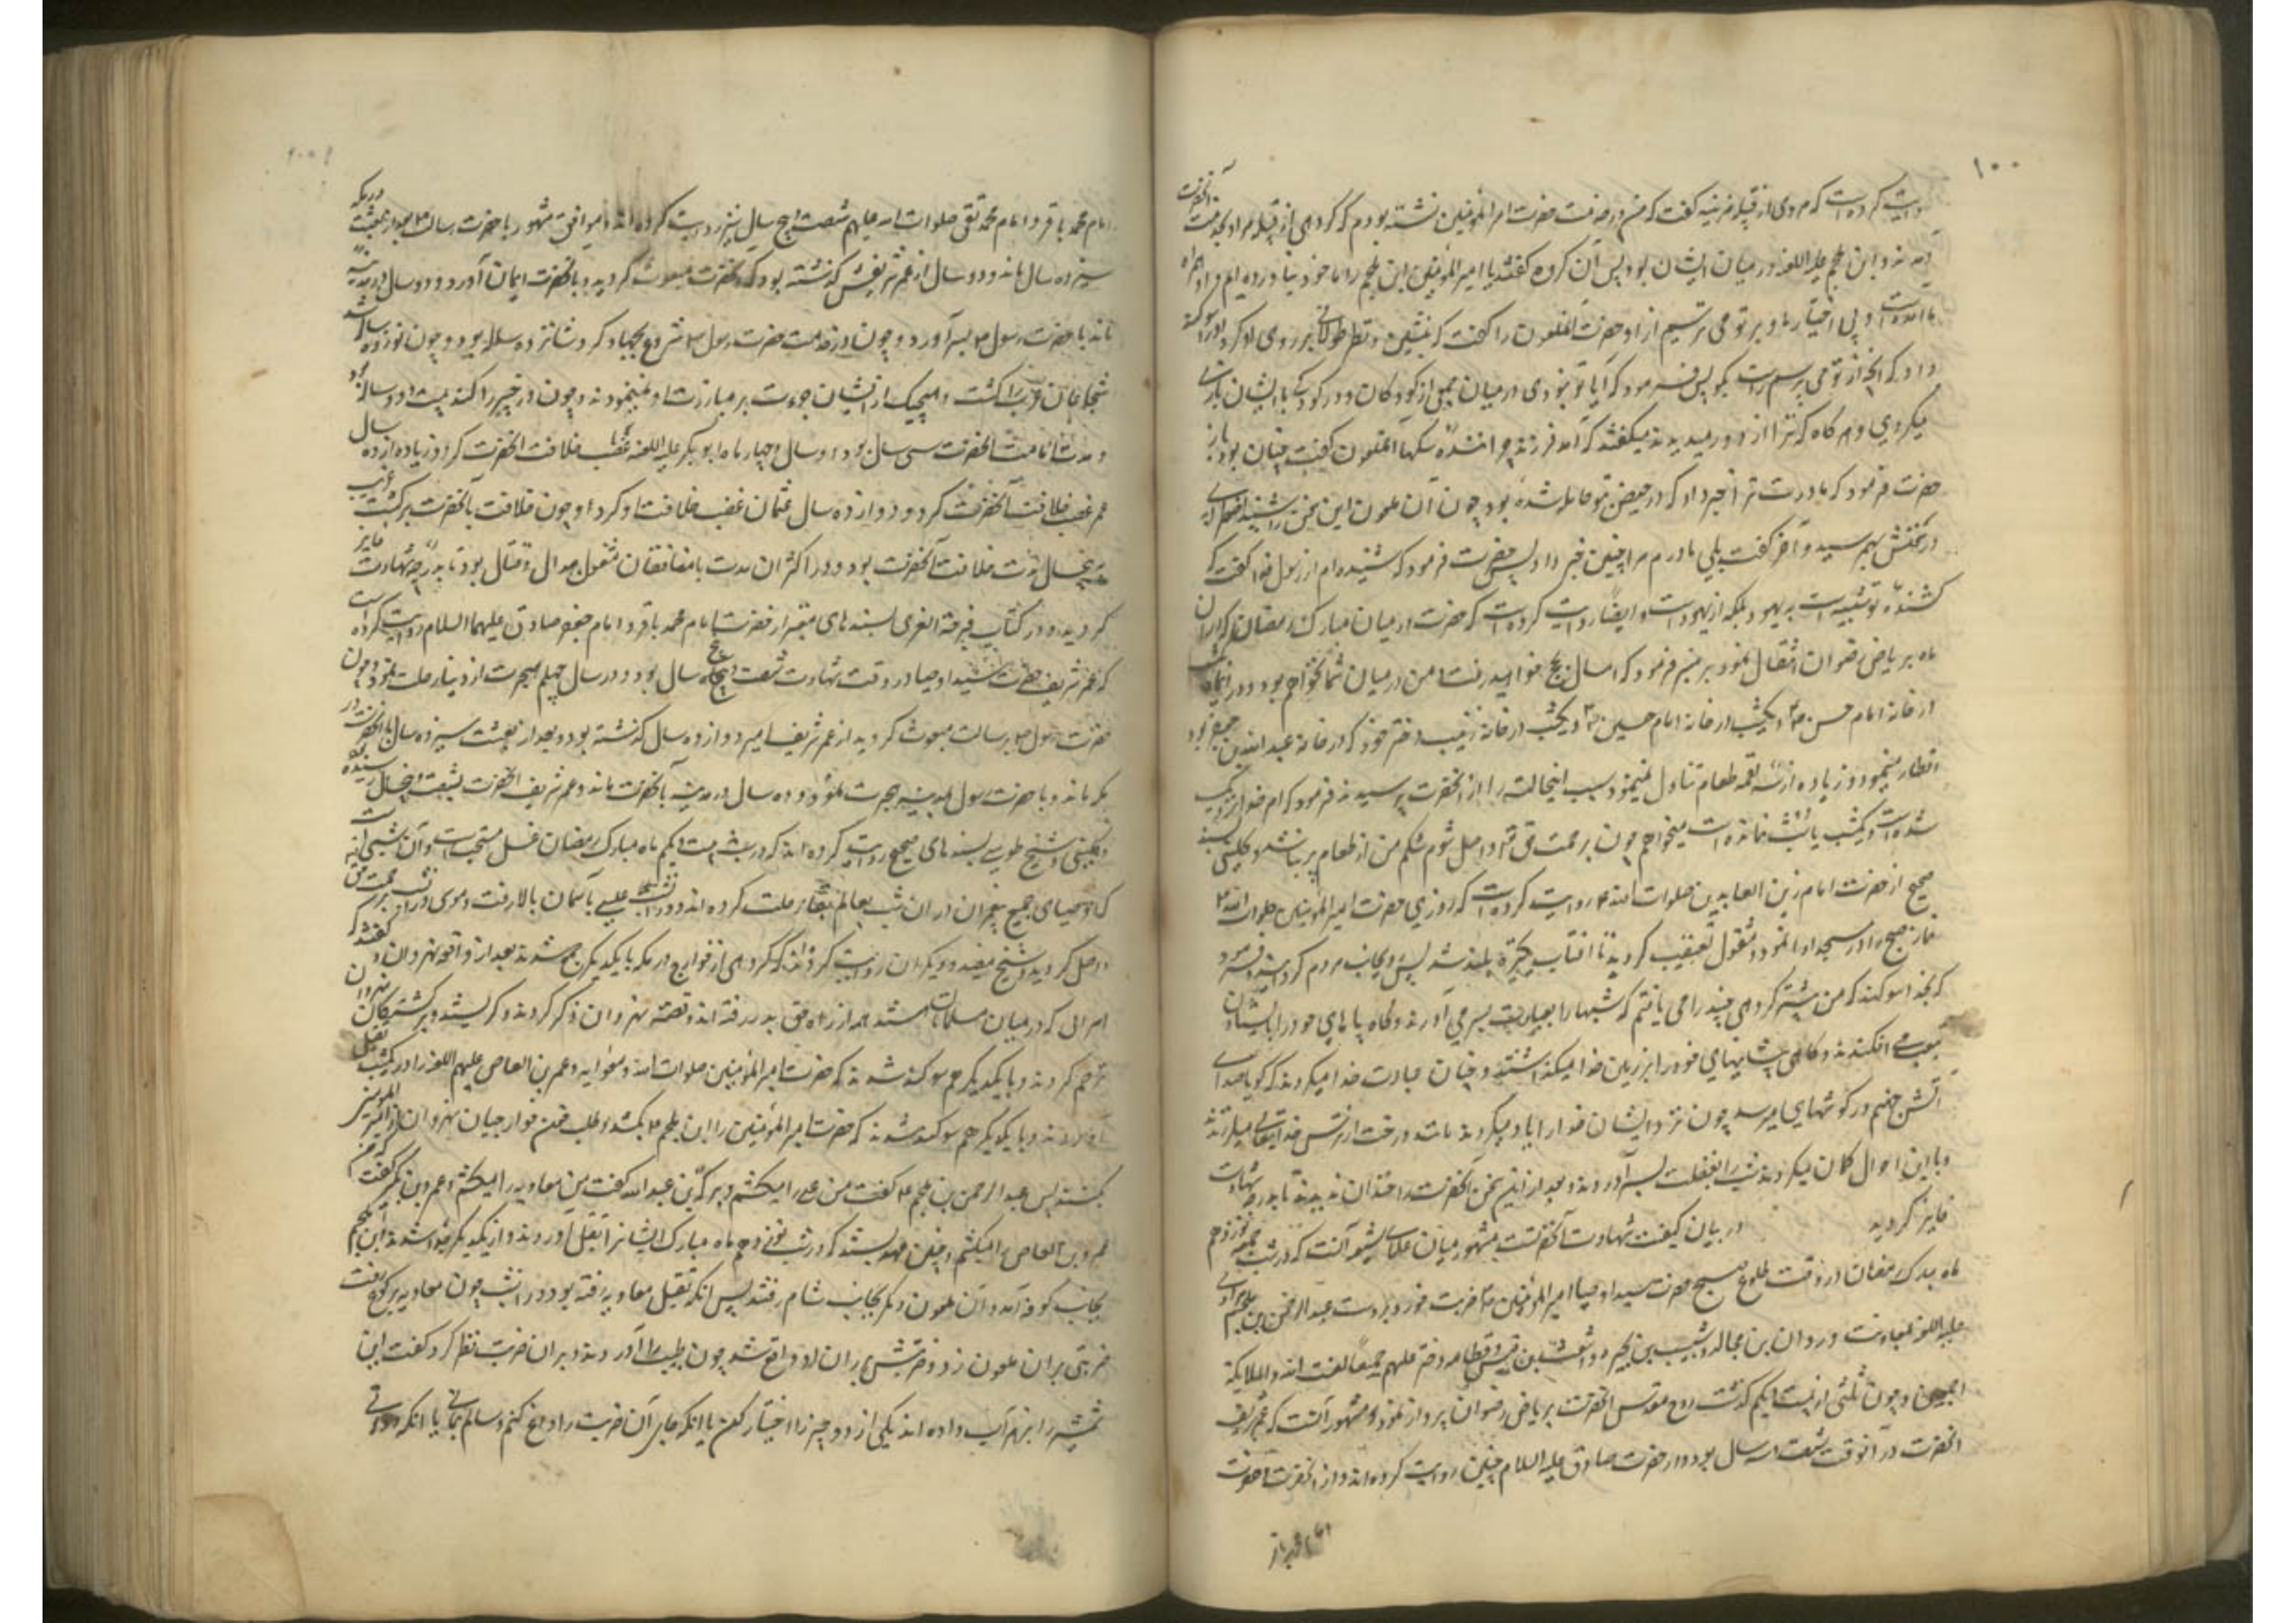 ۱۰۰
روایت کرده است که مردی از قبیله مزینه گفت که من در خدمت حضرت امیرالمؤمنین نشسته بودم که گروهی از قبیله مراد بخدمت آنحضرت
آمدند و ابن ملجم علیه اللعنه در میان ایشان بود پس آن گروه گفتند یا امیرالمؤمنین ابن ملجم را ما خود نیاورده ایم و او همراه
ما آمده است و بی اختیار ما و بر تو می ترسیم از او حضرت آنملعون را گفت که بنشین و نظر طولانی بر روی او کرد و او را سوگند
داد که آنچه از تو می پرسم راست بگو پس فرمود که آیا تو نبودی در میان جمعی از کودکان و در کودکی با ایشان بازی
میکردی و هرگاه که ترا از دور میدیدند میگفتند که آمد فرزند چراننده سگها آنملعون گفت چنان بود باز
حضرت فرمود که مادرت ترا خبر داد که در حیض بتو حامله شده بود چون آن ملعون این سخن را شنید
در سخنش بهم رسید و آخر گفت بلی مادرم مرا چنین خبر داد پس حضرت فرمود که شنیده ام از رسول خدا که گفت
کشنده تو شبیه است به یهود بلکه از یهود است و ایضا روایت کرده است که حضرت در میان مبارک رمضان که در آن
ماه بریاض رضوان انتقال نمود بر منبر فرمود که امسال بحج خواهید رفت و من در میان شما نخواهم بود و در آنماه یکشب
در خانه امام حسن ع و یکشب در خانه امام حسین ع و یکشب در خانه زینب دختر خود که در خانه عبدالله بن جعفر بود
افطار مینمود و زیاده از سه لقمه طعام تناول نمینمود سبب اینحالت را از آنحضرت پرسیدند فرمود که امر خدا نزدیک
شده است و یکشب یا دو شب مانده است میخواهم چون برحمت حق واصل شوم شکم من از طعام پر نباشد و کلینی بسند
صحیح از حضرت امام زین العابدین صلوات الله علیه روایت کرده است که روزی حضرت امیرالمؤمنین صلوات الله علیه
نماز صبح را در مسجد ادا نمود و مشغول تعقیب گردید تا آفتاب بلند شد پس رو بجانب مردم گردانید و فرمود
که بخدا سوگند که من پیشتر گروهی چند را می یافتم که شبها را بعبادت بسر می آوردند و گاه پاهای خود را با یستادن
بتعب می افکندند و گاهی پیشانیهای خود را بر زمین خدا میگذاشتند و چنان عبادت خدا میکردند که گویا صدای
آتش جهنم در گوشهای ایشان میرسد چون نزد ایشان خدا را یاد میکردند مانند درخت از ترس خدایتعالی میلرزیدند
و با این احوال گمان میکردند شب را بغفلت بسر آوردند و بعد از این سخن آنحضرت را خندان ندیدند تا بدرجه شهادت
فایز گردید در بیان کیفیت شهادت آنحضرت مشهور میان علمای شیعه آنست که در شب جمعه نوزدهم
ماه مبارک رمضان در وقت طلوع صبح حضرت سید اوصیا امیرالمؤمنین ع ضربت خورد بر دست عبدالرحمن بن ملجم مرادی
علیه اللعنه بمعاونت وردان بن مجالد و شبیب بن بجیره و اشعث بن قیس و قطامه دختر علیهم جمیعا لعنت الله و الملایکة
اجمعین و چون ثلثی از شب بیست و یکم گذشت روح مقدس آنحضرت بریاض رضوان پرواز نمود و مشهور آنست که عمر شریف
آنحضرت در آنوقت شصت و سه سال بود و از حضرت صادق علیه السلام چنین روایت کرده اند و از آنحضرت و حضرت
امام محمد باقر و امام محمد تقی صلوات الله علیهم شصت و پنج سال نیز روایت کرده اند و موافق مشهور با حضرت رسالت ص بعد از بعثت در مکه
سیزده سال ماند و ده سال از عمر شریفش گذشته بود که آنحضرت مبعوث گردید و بآنحضرت ایمان آورد و ده سال در مدینه
ماند با حضرت رسول ص بسر آورد و چون در خدمت حضرت رسول ص شروع بجهاد کرد شانزده ساله بود و چون نوزده ساله شد
شجاعان عرب را کشت و هیچیک از ایشان جرءت بر مبارزت او نمینمودند و چون در خیبر را کند بیست و دو ساله بود
و مدت امامت آنحضرت سی سال بود دو سال و چهار ماه ابوبکر علیه اللعنه غصب خلافت آنحضرت کرد و زیاده از ده سال
عمر غصب خلافت آنحضرت کرد و دوازده سال عثمان غصب خلافت او کرد و چون خلافت بآنحضرت برگشت قریب
پنجسال مدت خلافت آنحضرت بود و در اکثر آن مدت با منافقان مشغول جدال و قتال بود تا بدرجه شهادت فایز
گردید و در کتاب فرحة الغری بسندهای معتبر از حضرت امام محمد باقر و امام جعفر صادق علیهما السلام روایت کرده است
که عمر شریف حضرت سید اوصیا در وقت شهادت شصت و پنج سال بود و در سال چهلم هجرت از دنیا رحلت نمود و چون
حضرت رسول ص برسالت مبعوث گردید از عمر شریف امیر دوازده سال گذشته بود و بعد از بعثت سیزده سال با آنحضرت در
مکه ماند و با حضرت رسول بمدینه هجرت نمود و ده سال در مدینه با آنحضرت ماند و عمر شریف آنحضرت بشصت و پنجسال رسیده بود
و کلینی و شیخ طوسی بسندهای صحیح روایت کرده اند که در شب بیست و یکم ماه مبارک رمضان غسل مستحب است و آن شبی است
که اوصیای جمیع پیغمبران در آن شب بعالم بقا رحلت کرده اند و در آن شب عیسی بآسمان بالا رفت و موسی در آن شب برحمت حق
واصل گردید و شیخ مفید و دیگران روایت کرده اند که گروهی از خوارج در مکه با یکدیگر جمع شدند بعد از واقعه نهروان و گفتند که
امرائی که در میان مسلمانان هستند همه از راه حق بدر رفته اند و قصه نهروان ذکر کردند و گریستند و بر کشتگان نهروان
ترحم کردند و با یکدیگر هم سوگند شدند که حضرت امیرالمؤمنین صلوات الله و معاویه و عمرو بن العاص علیهم اللعنه را در یکشب بقتل
آورند و با یکدیگر هم سوگند شدند که حضرت امیرالمؤمنین را ابن ملجم بکشد و طلب خون خوارجیان نهروان از امیرالمؤمنین
بکنند پس عبدالرحمن بن ملجم گفت من علی را میکشم و برک بن عبدالله گفت من معاویه را میکشم و عمرو بن بکر گفت
عمرو بن العاص را میکشم و چنین عهد بستند که در شب نوزدهم ماه مبارک ایشانرا بقتل آورند و از یکدیگر جدا شدند ابن ملجم
بجانب کوفه آمد و آن ملعون دیگر بجانب شام رفتند پس آنکه بقتل معاویه رفته بود در آنشب چون معاویه برکوع رفت
ضربتی بر آن ملعون زد و ضربتش بر ران او واقع شد چون طبیب را آوردند و بر آن ضربت نظر کرد گفت این
شمشیر را بزهر آب داده اند یکی از دو چیز را اختیار کن یا آنکه جای آن ضربت را داغ کنم و سالم بمانی یا آنکه دوائی